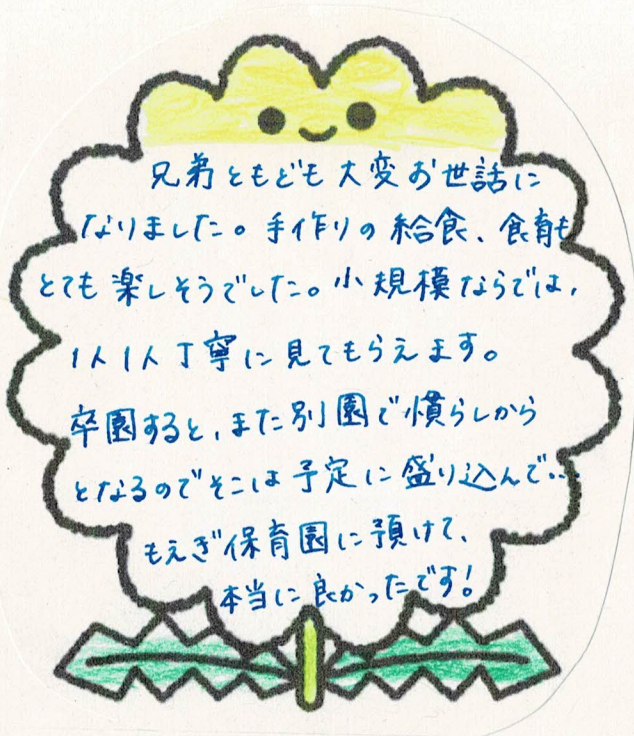 兄弟ともども大変お世話に
なりました。手作りの給食、食育も
とても楽しそうでした。小規模ならでは、
1人1人丁寧に見てもらえます。
卒園すると、また別園で慣らしから
となるのでそこは予定に盛り込んで...
もえぎ保育園に預けて、
本当に良かったです!